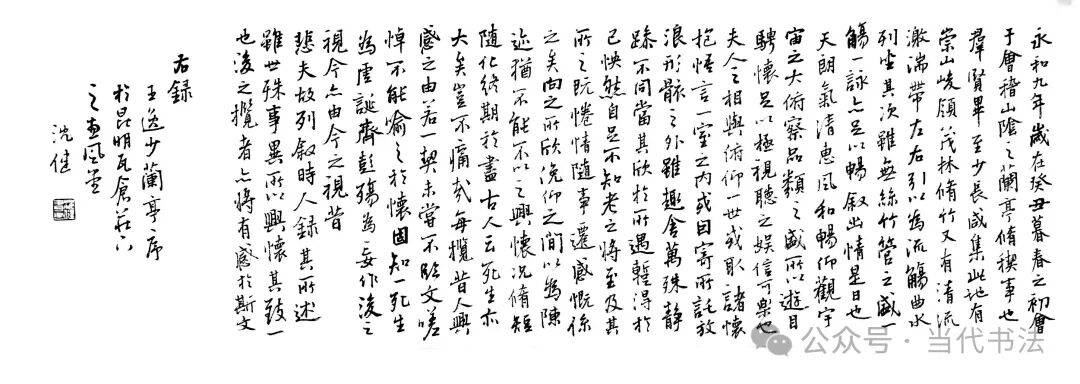 永和九年歲在癸丑暮春之初會
于會稽山陰之蘭亭脩稧事也
羣賢畢至少長咸集此地有
崇山峻領茂林脩竹又有清流
激湍帶左右引以為流觴曲水
列坐其次雖無絲竹管之盛一
觴一詠亦足以暢叙幽情是日也
天朗氣清惠風和暢仰觀宇
宙之大俯察品類之盛所以遊目
騁懷足以極視聽之娛信可樂也
夫人之相與俯仰一世或取諸懷
抱悟言一室之內或因寄所託放
浪形骸之外雖趣舍萬殊靜
躁不同當其欣於所遇蹔得於
己怏然自足不知老之將至及其
所之既惓情隨事遷感慨係
之矣向之所欣俛仰之間以為陳
迹猶不能不以之興懷況脩短
隨化終期於盡古人云死生亦
大矣豈不痛哉每攬昔人興
感之由若一契未嘗不臨文嗟
悼不能喻之於懷固知一死生
為虛誕齊彭殤為妄作後之
視今亦由今之視昔
悲夫故列叙時人錄其所述
雖世殊事異所以興懷其致一
也後之攬者亦將有感於斯文
右錄
王逸少蘭亭序
於昆明瓦倉莊下
之風堂
沈
公众号·当代书法